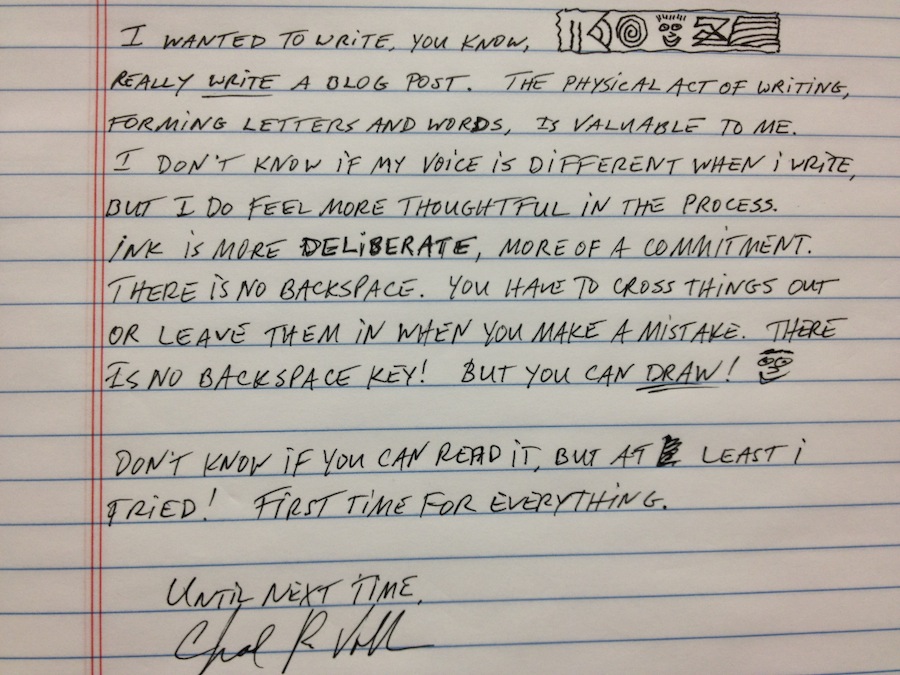 I WANTED TO WRITE, YOU KNOW,
REALLY WRITE A BLOG POST. THE PHYSICAL ACT OF WRITING,
FORMING LETTERS AND WORDS, IS VALUABLE TO ME.
I DON'T KNOW IF MY VOICE IS DIFFERENT WHEN I WRITE,
BUT I DO FEEL MORE THOUGHTFUL IN THE PROCESS.
INK IS MORE DELIBERATE, MORE OF A COMMITMENT.
THERE IS NO BACKSPACE. YOU HAVE TO CROSS THINGS OUT
OR LEAVE THEM IN WHEN YOU MAKE A MISTAKE. THERE
IS NO BACKSPACE KEY! BUT YOU CAN DRAW!
DON'T KNOW IF YOU CAN READ IT, BUT AT LEAST I
TRIED! FIRST TIME FOR EVERYTHING.
UNTIL NEXT TIME,